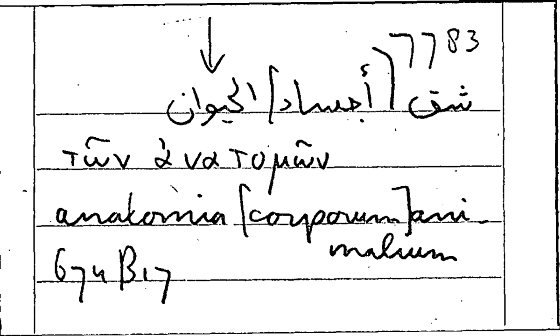 7783
شق [أجساد] الحيوان
τῶν ἀνατομῶν
anatomia [corporum] ani-
malium
674 B17